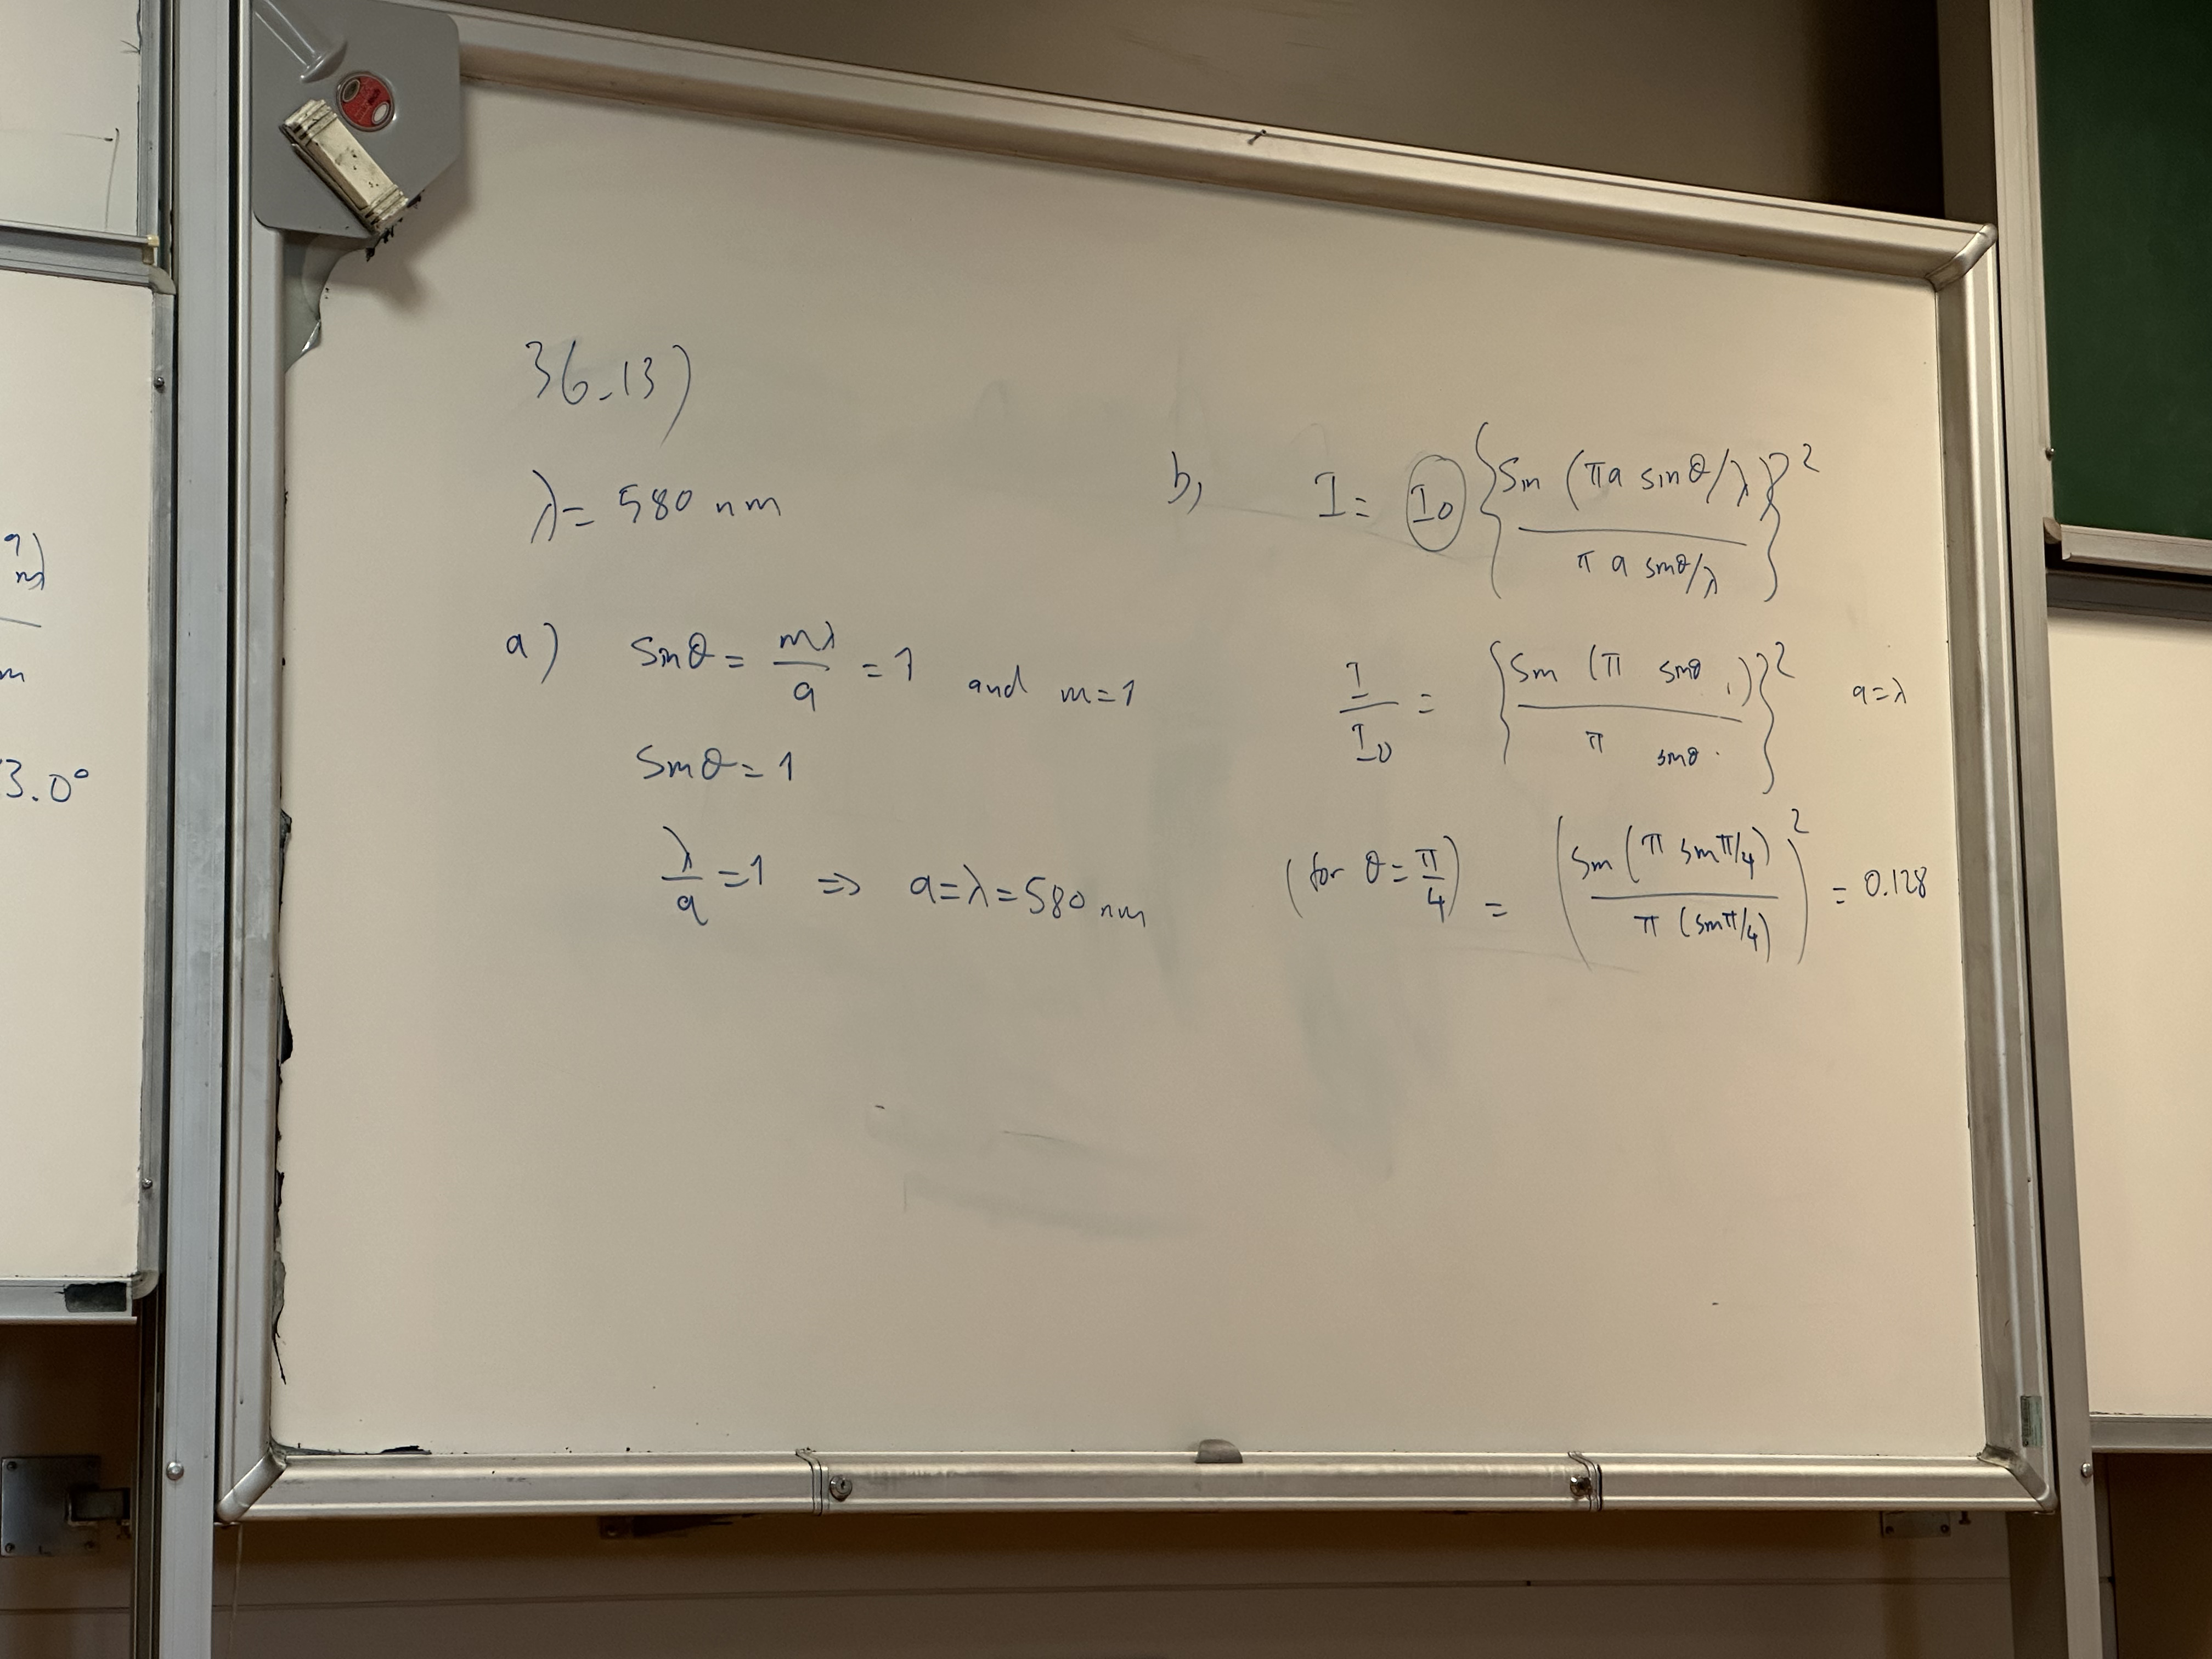 36.13)
λ = 580 nm
a) sinθ = mλ/a = 1 and m=1
sinθ = 1
λ/a = 1 => a=λ=580 nm
b, I = I0 {sin (πa sinθ/λ) / π a sinθ/λ}²
I/I0 = {sin (π sinθ) / π sinθ}² a=λ
(for θ = π/4) = (sin (π sin π/4) / π (sin π/4))² = 0.128
m
3.0°